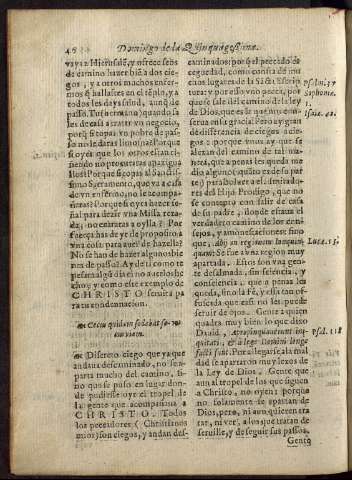 46
Domingo de la Quinquagesima.
vaya a Hierusalẽ, y ofrece seos
de camino hazer biẽ a dos cie-
gos, y a otros muchos enfer-
mos q̃ hallastes en el tẽplo, y a
todos les days salud, aunq̃ de
passo.
le de casa a tratar vn negocio,
porq̃ si topas vn pobre de pas-
so no le daras limosna? Porque
si oyes que los otros estan ti-
ñendo no procuras apaziguar
los? Porque si topas al Sanctis-
simo Sacramento, que va a ca-
sa de vn enfermo, no le acompa-
ñaras? Porque si oyes hazer se-
ñal para dezir vna Missa reza-
da, no entraras a oylla? Por
fuerça has de yr de proposito a
vna cosa para auer de hazella?
No se han de hazer algunos bie-
nes de passo?
pesar a algũ dia el no auerlos he-
cho; y como este exemplo de
CHRISTO seruira pa
ra tu condenacion.
Cecus quidam sedebat se-
cus viam.
Discreto ciego que ya que
andaua descaminado, no se a-
parta mucho del camino, si
no que se puso en lugar don-
de pudiesse oyr el tropel de
la gente que acompañaua a
CHRISTO. Todos
los peccadores (Christianos
mios) son ciegos, y andan des-
caminados: por q̃ el peccado es
ceguedad, como consta de mu-
chos lugares de la Sãcta Escrip
tura: y por esso vno pecca, por
que se sale del camino de la ley
de Dios, que es la que nos con-
serua en la gracia: Pero ay gran
diferencia de ciegos a cie-
gos: porque vnos ay que se
alexan del camino de tal ma-
nera, que a penas les queda me
dio alguno (quãto es de su par
te) para boluer a el.
dores del Hijo Prodigo, que no
se contento con salir de casa
de su padre, donde estaua el
verdadero camino de los conse-
jos, y amonestaciones: sino
que, abijt in regionem longinquã
quam: Se fue a vna region muy
apartada. Estos son vna gen-
te desalmada, sin sciencia, y
consciencia, que a penas les
queda, sino la Fè, y essa tan of-
fuscada que casi no les puede
seruir de ojos. Gente a quien
quadra muy bien lo que dixo
Dauid, Appropinquauerunt ini-
quitati, & a lege Domini longe
facti sunt. Por allegarse a la mal
dad se apartaron muy lexos de
la Ley de Dios. Gente que
aun al tropel de los que siguen
a Christo, no oyen: porque
no solamente se apartan de
Dios, pero, ni aun quieren tra
tar, ni ver, a los que tratan de
seruille, y de seguir sus passos.
Gente
Isaie. 42.
Luce. 15.
Psal. 118